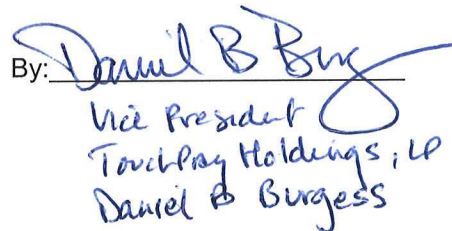 By: Daniel B Burg
Vice President
TouchPay Holdings, LP
Daniel B Burgess